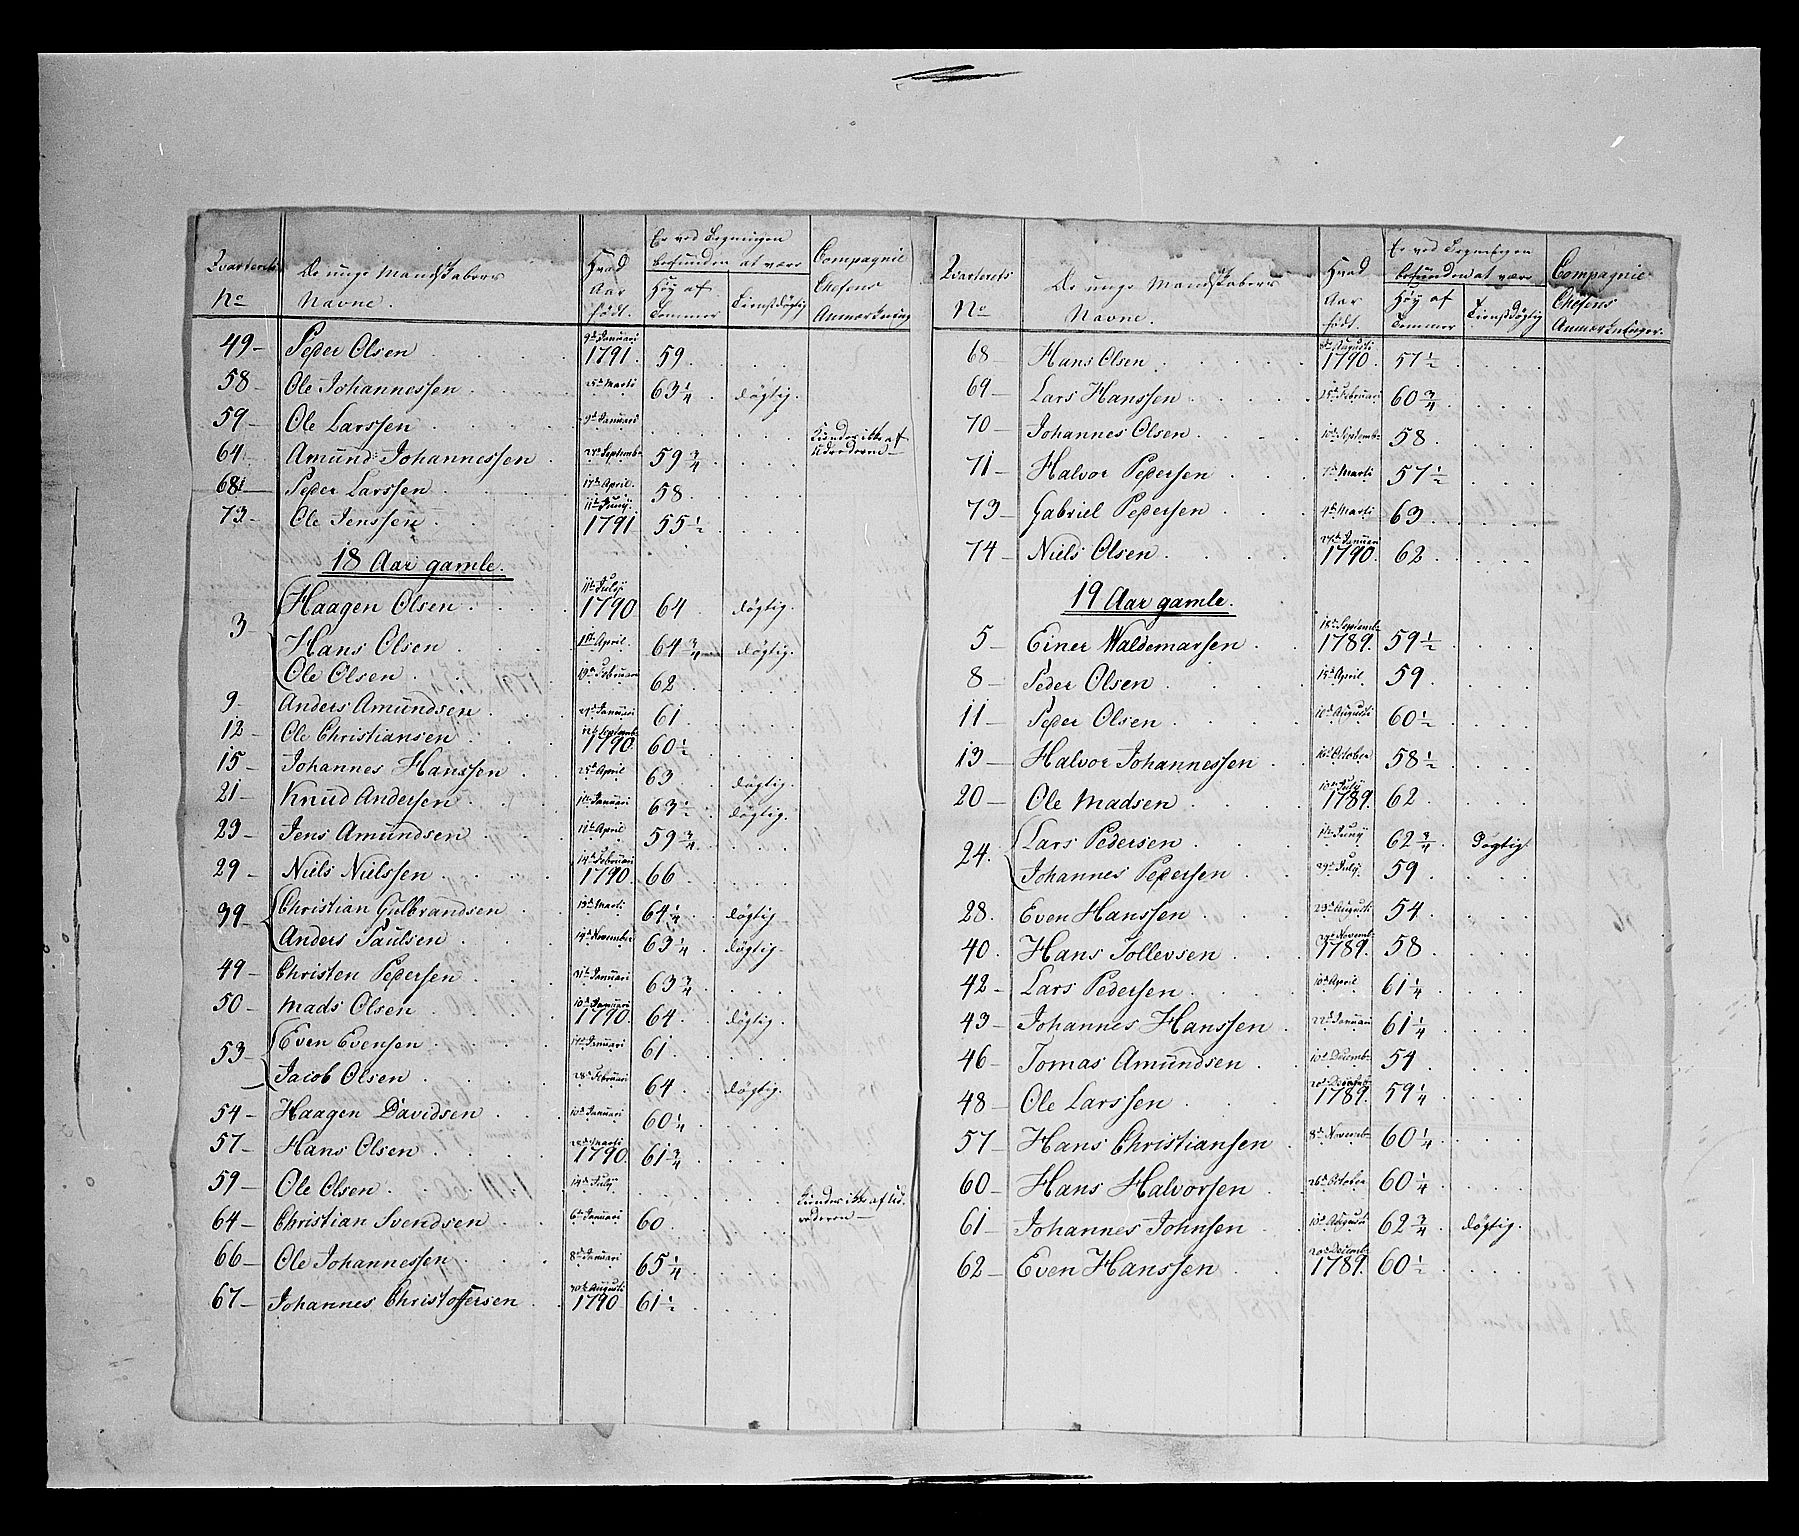 Qvarterets No | De unge Mandskabers Navne. | Hvad Aar født. | Er ved Tegningen befunden at være Høy af Tommer | Tienstdøgtig | Compagnie Chefens Anmærkning
49 – Peder Olsen 9de Januari 1791. 59
58 – Ole Johannessen 15de Marti 63 1/4 døgtig.
59 – Ole Larssen 9de Januari Kiender ikke af Udrederne
64 – Amund Johannessen 27de Septembr 59 3/4
68 – Peder Larssen 17de April. 58
73 – Ole Jenssen 11te Juny 1791 55 1/2
18 Aar gamle.
3 Haagen Olsen 11te July 1790 64 døgtig.
Hans Olsen 1ste April. 64 3/4 døgtig.
Ole Olsen 19de Februari 62
9 – Anders Amundsen 29de Januari 61
12 – Ole Christiansen 12te Septembr 1790. 60 1/2
15 – Johannes Hanssen 25de April 63 døgtig.
21 – Knud Andersen 1ste Januari 63 1/2 døgtig.
23 – Jens Amundsen 12te April 59 3/4
29 – Niels Nielssen 14de Februari 1790 66
39 – Christian Gulbrandsen 13de Marti 64 1/4 døgtig
Anders Paulsen 19de November 63 1/4 døgtig
49 – Christen Pedersen 31te Januari 63 3/4
50 – Mads Olsen 10de Januari 1790. 64 døgtig.
53 – Even Evensen 17de Januari 61
Jacob Olsen 28de Februari 64 døgtig.
54 – Haagen Davidsen 10de Januari 60 1/4
57 – Hans Olsen 28de Marti 1790. 61 3/4
59 – Ole Olsen 14de July Kiender ikke af Udrederen
64 – Christian Svendsen 6te Januari 60
66 – Ole Johannessen 8de Januari 65 1/4
67 – Johannes Christoffersen 30te Augusti 1790 61 1/2
Qvarterets No | De unge Mandskabers Navne. | Hvad Aar født. | Er ved Tegningen befunden at være Høy af Tommer | Tienstdøgtig | Compagnie Chefens Anmærkninger.
68 – Hans Olsen Augusti 1790 57 1/2
69 – Lars Hanssen 25de Februari 60 3/4
70 – Johannes Olsen 10de Septembr 58
71 – Halvor Pedersen 7de Marti 57 1/2
73 – Gabriel Pedersen 4de Marti 63
74 – Niels Olsen 27de Januari 1790. 62
19 Aar gamle.
5 – Einer Waldemarsen 18de Septembr 1789. 59 1/2
8 – Peder Olsen 15de April 59
11 – Peder Olsen 10de Augusti 60 1/2
13 – Halvor Johannessen 16de October 58 1/2
20 – Ole Madsen 10de July 1789. 62
24. Lars Pedersen 1ste Juny 62 3/4 døgtig.
Johannes Pedersen 29de July 59
28. Even Hanssen 23de Augusti 54
40. Hans Tollevsen 24de Novembr 1789. 58
42 – Lars Pedersen 10de April 61 1/4
43 – Johannes Hanssen 22de Januari 61 1/4
46 – Tomas Amundsen 10de Decembr 54
48 – Ole Larssen 1789. 59 1/4
57 – Hans Christiansen 8de Novembr 60 1/4
60 – Hans Halvorsen 26de October 60 1/4
61 – Johannes Johnsen 15de Augusti 62 3/4 døgtig.
62 – Even Hanssen 20de Decembr 1789. 60 1/2